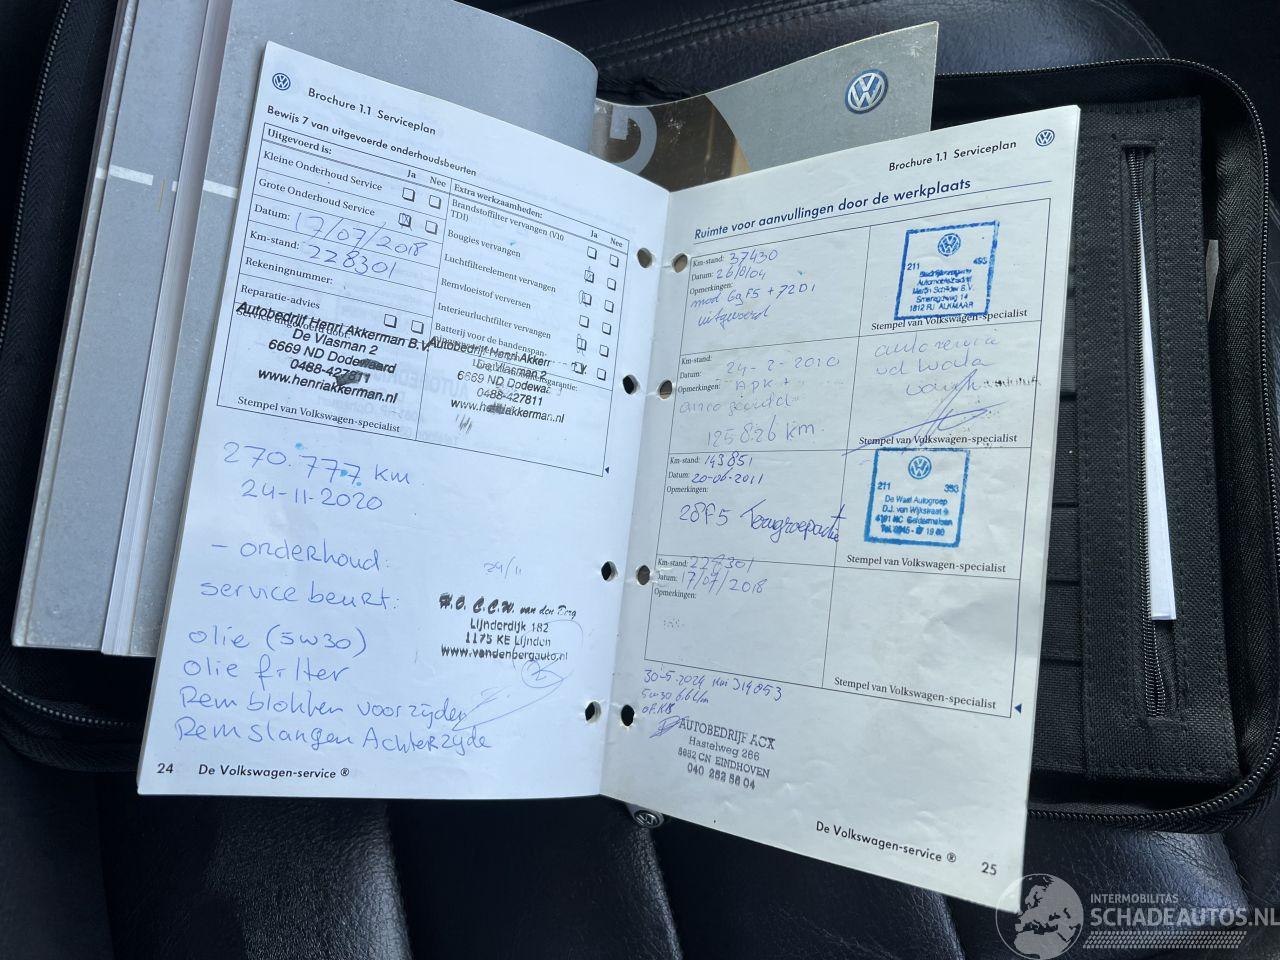 Brochure 1.1 Serviceplan
Bewijs 7 van uitgevoerde onderhoudsbeurten
Uitgevoerd is: Ja Nee
Kleine Onderhoud Service
Grote Onderhoud Service
Datum: 17/07/2018
Km-stand: 228301
Rekeningnummer:
Reparatie-advies
Autobedrijf Henri Akkerman B.V.
De Vlasman 2
6669 ND Dodewaard
0488-427811
www.henriakkerman.nl
Stempel van Volkswagen-specialist
Extra werkzaamheden: Ja Nee
Brandstoffilter vervangen (V10
TDI)
Bougies vervangen
Luchtfilterelement vervangen
Remvloeistof verversen
Interieurluchtfilter vervangen
Batterij voor de bandenspan-
Autobedrijf Henri Akkerr
De Vlasman 2
6669 ND Dodewaa
0488-427811
www.henriakkerman.nl
270.777 km
24-11-2020
- onderhoud:
service beurt:
olie (5w30)
olie filter
Remblokken voorzijde
Remslangen Achterzijde
24/11
C.C.W. van den Berg
Lijnderdijk 182
1175 KE Lijnden
www.vandenbergauto.nl
24 De Volkswagen-service ®
Brochure 1.1 Serviceplan
Ruimte voor aanvullingen door de werkplaats
Km-stand: 37430
Datum: 26/8/04
Opmerkingen:
mod 69F5 + 72D1
uitgevoerd
211 493
Automobielbedrijf
Martin Schilder B.V.
Smaragdweg 14
1812 RJ ALKMAAR
Stempel van Volkswagen-specialist
Km-stand:
Datum: 24-2-2010
Opmerkingen: APK +
125826 km.
autoservice
Stempel van Volkswagen-specialist
Km-stand: 143851
Datum: 20-06-2011
Opmerkingen:
28F5 Terugroepactie
211 393
De Waal Autogroep
D.J. van Wijkstraat 9
4191 MC Geldermalsen
Stempel van Volkswagen-specialist
Km-stand: 228301
Datum: 17/07/2018
Opmerkingen:
Stempel van Volkswagen-specialist
30-5-2024 km 314853
5w30 6.6L/m
AUTOBEDRIJF ACX
Hastelweg 266
5652 CN EINDHOVEN
040 252 56 04
De Volkswagen-service ® 25
INTERMOBILITAS
SCHADEAUTOS.NL